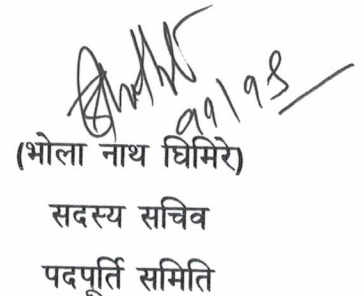 ११।१९
(भोला नाथ घिमिरे)
सदस्य सचिव
पदपूर्ति समिति